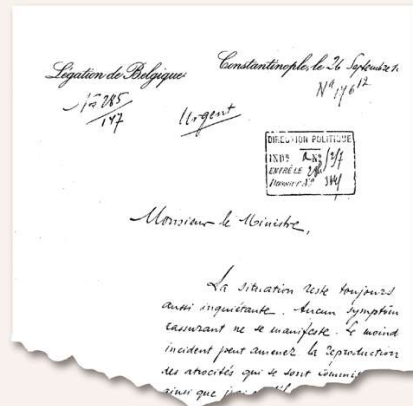 Légation de Belgique
Constantinople, le 26 Septembre
285
147
Urgent
DIRECTION POLITIQUE
ENTRÉ LE
Monsieur le Ministre,
La situation reste toujours
aussi inquiétante. Aucun symptôm
rassurant ne se manifeste. Le moind
incident peut amener la reproduction
des atrocités qui se sont commis
ainsi que